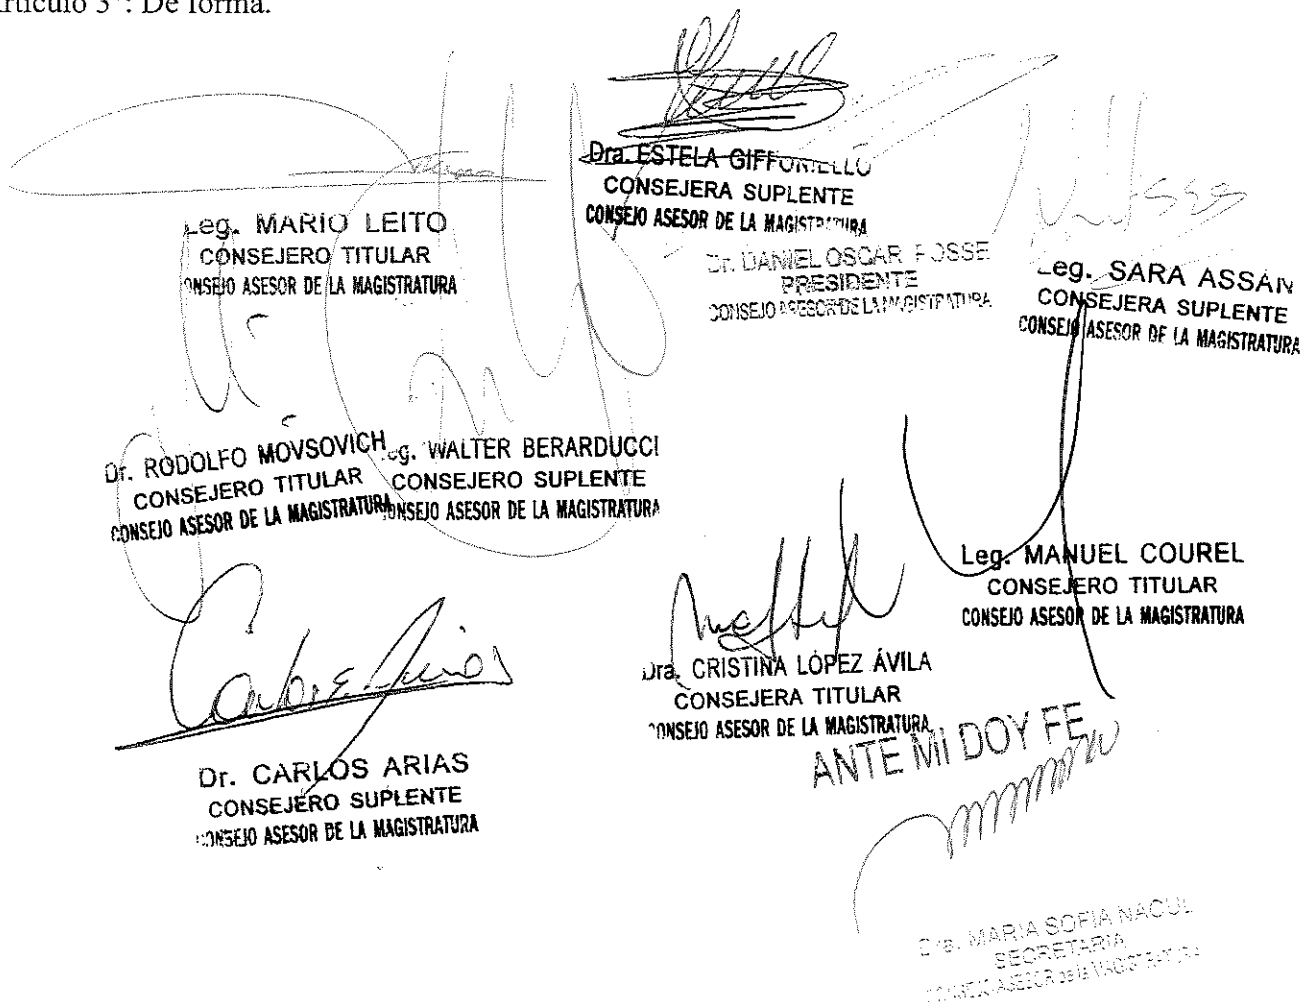 Artículo 3°: De forma.
Dra. ESTELA GIFFONIELLO
CONSEJERA SUPLENTE
CONSEJO ASESOR DE LA MAGISTRATURA
Leg. MARIO LEITO
CONSEJERO TITULAR
CONSEJO ASESOR DE LA MAGISTRATURA
Dr. DANIEL OSCAR POSSE
PRESIDENTE
CONSEJO ASESOR DE LA MAGISTRATURA
Leg. SARA ASSÁN
CONSEJERA SUPLENTE
CONSEJO ASESOR DE LA MAGISTRATURA
Dr. RODOLFO MOVSOVICH
CONSEJERO TITULAR
CONSEJO ASESOR DE LA MAGISTRATURA
Leg. WALTER BERARDUCCI
CONSEJERO SUPLENTE
CONSEJO ASESOR DE LA MAGISTRATURA
Leg. MANUEL COUREL
CONSEJERO TITULAR
CONSEJO ASESOR DE LA MAGISTRATURA
Dra. CRISTINA LÓPEZ ÁVILA
CONSEJERA TITULAR
CONSEJO ASESOR DE LA MAGISTRATURA
ANTE MI DOY FE
Dr. CARLOS ARIAS
CONSEJERO SUPLENTE
CONSEJO ASESOR DE LA MAGISTRATURA
Dra. MARIA SOFIA NACUL
SECRETARIA
CONSEJO ASESOR de la MAGISTRATURA